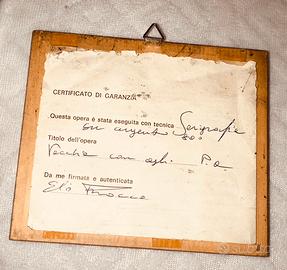 CERTIFICATO DI GARANZIA
Questa opera è stata eseguita con tecnica Serigrafia
su argento
Titolo dell'opera
Vecchia con P.a.
Da me firmata e autenticata